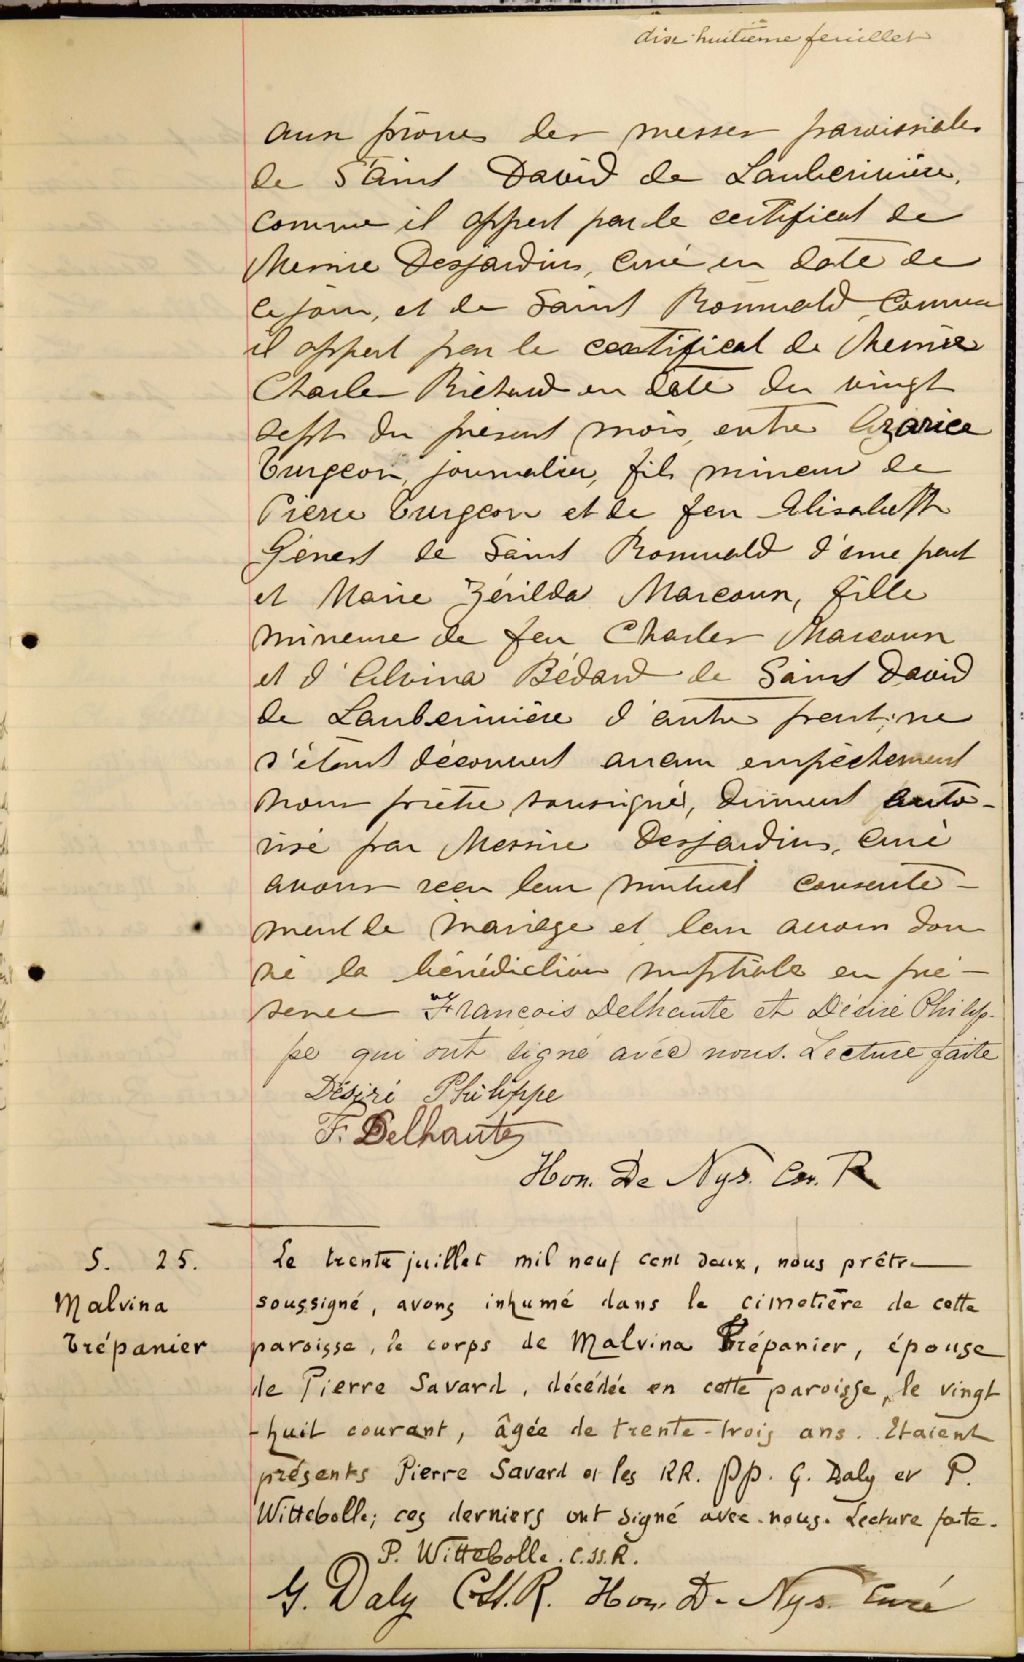 dix-huitième feuillet
aux prônes des messes paroissiales
de Saint David de Lauberivière,
comme il appert par le certificat de
Messire Desjardins, curé en date de
ce jour, et de Saint Romuald, comme
il appert par le certificat de Messire
Charles Richard en date du vingt
sept du présent mois, entre Azarice
Turgeon, journalier, fils mineur de
Pierre Turgeon et de feu Elisabeth
Génest de Saint Romuald d'une part
et Marie Zérilda Marcoux, fille
mineure de feu Charles Marcoux
et d'Alvina Bédard de Saint David
de Lauberivière d'autre part; ne
s'étant découvert aucun empêchement
nous prêtre soussigné, dûment auto-
risé par Messire Desjardins, curé
avons reçu leur mutuel consente-
ment de mariage et leur avons don
né la bénédiction nuptiale en pré-
sence François Delhaute et Désiré Philip-
pe qui ont signé avec nous. Lecture faite
Désiré Philippe
F. Delhaute
Hon. De Nys. C.ss.R
S. 25.
Malvina
Trépanier
Le trente juillet mil neuf cent deux, nous prêtre
soussigné, avons inhumé dans le cimetière de cette
paroisse, le corps de Malvina Trépanier, épouse
de Pierre Savard, décédée en cette paroisse, le vingt
-huit courant, âgée de trente-trois ans. Etaient
présents Pierre Savard et les RR. PP. G. Daly et P.
Wittebolle; ces derniers ont signé avec nous. Lecture faite.
P. Wittebolle. C.SS.R.
G. Daly C.SS.R. Hon. De Nys. Curé